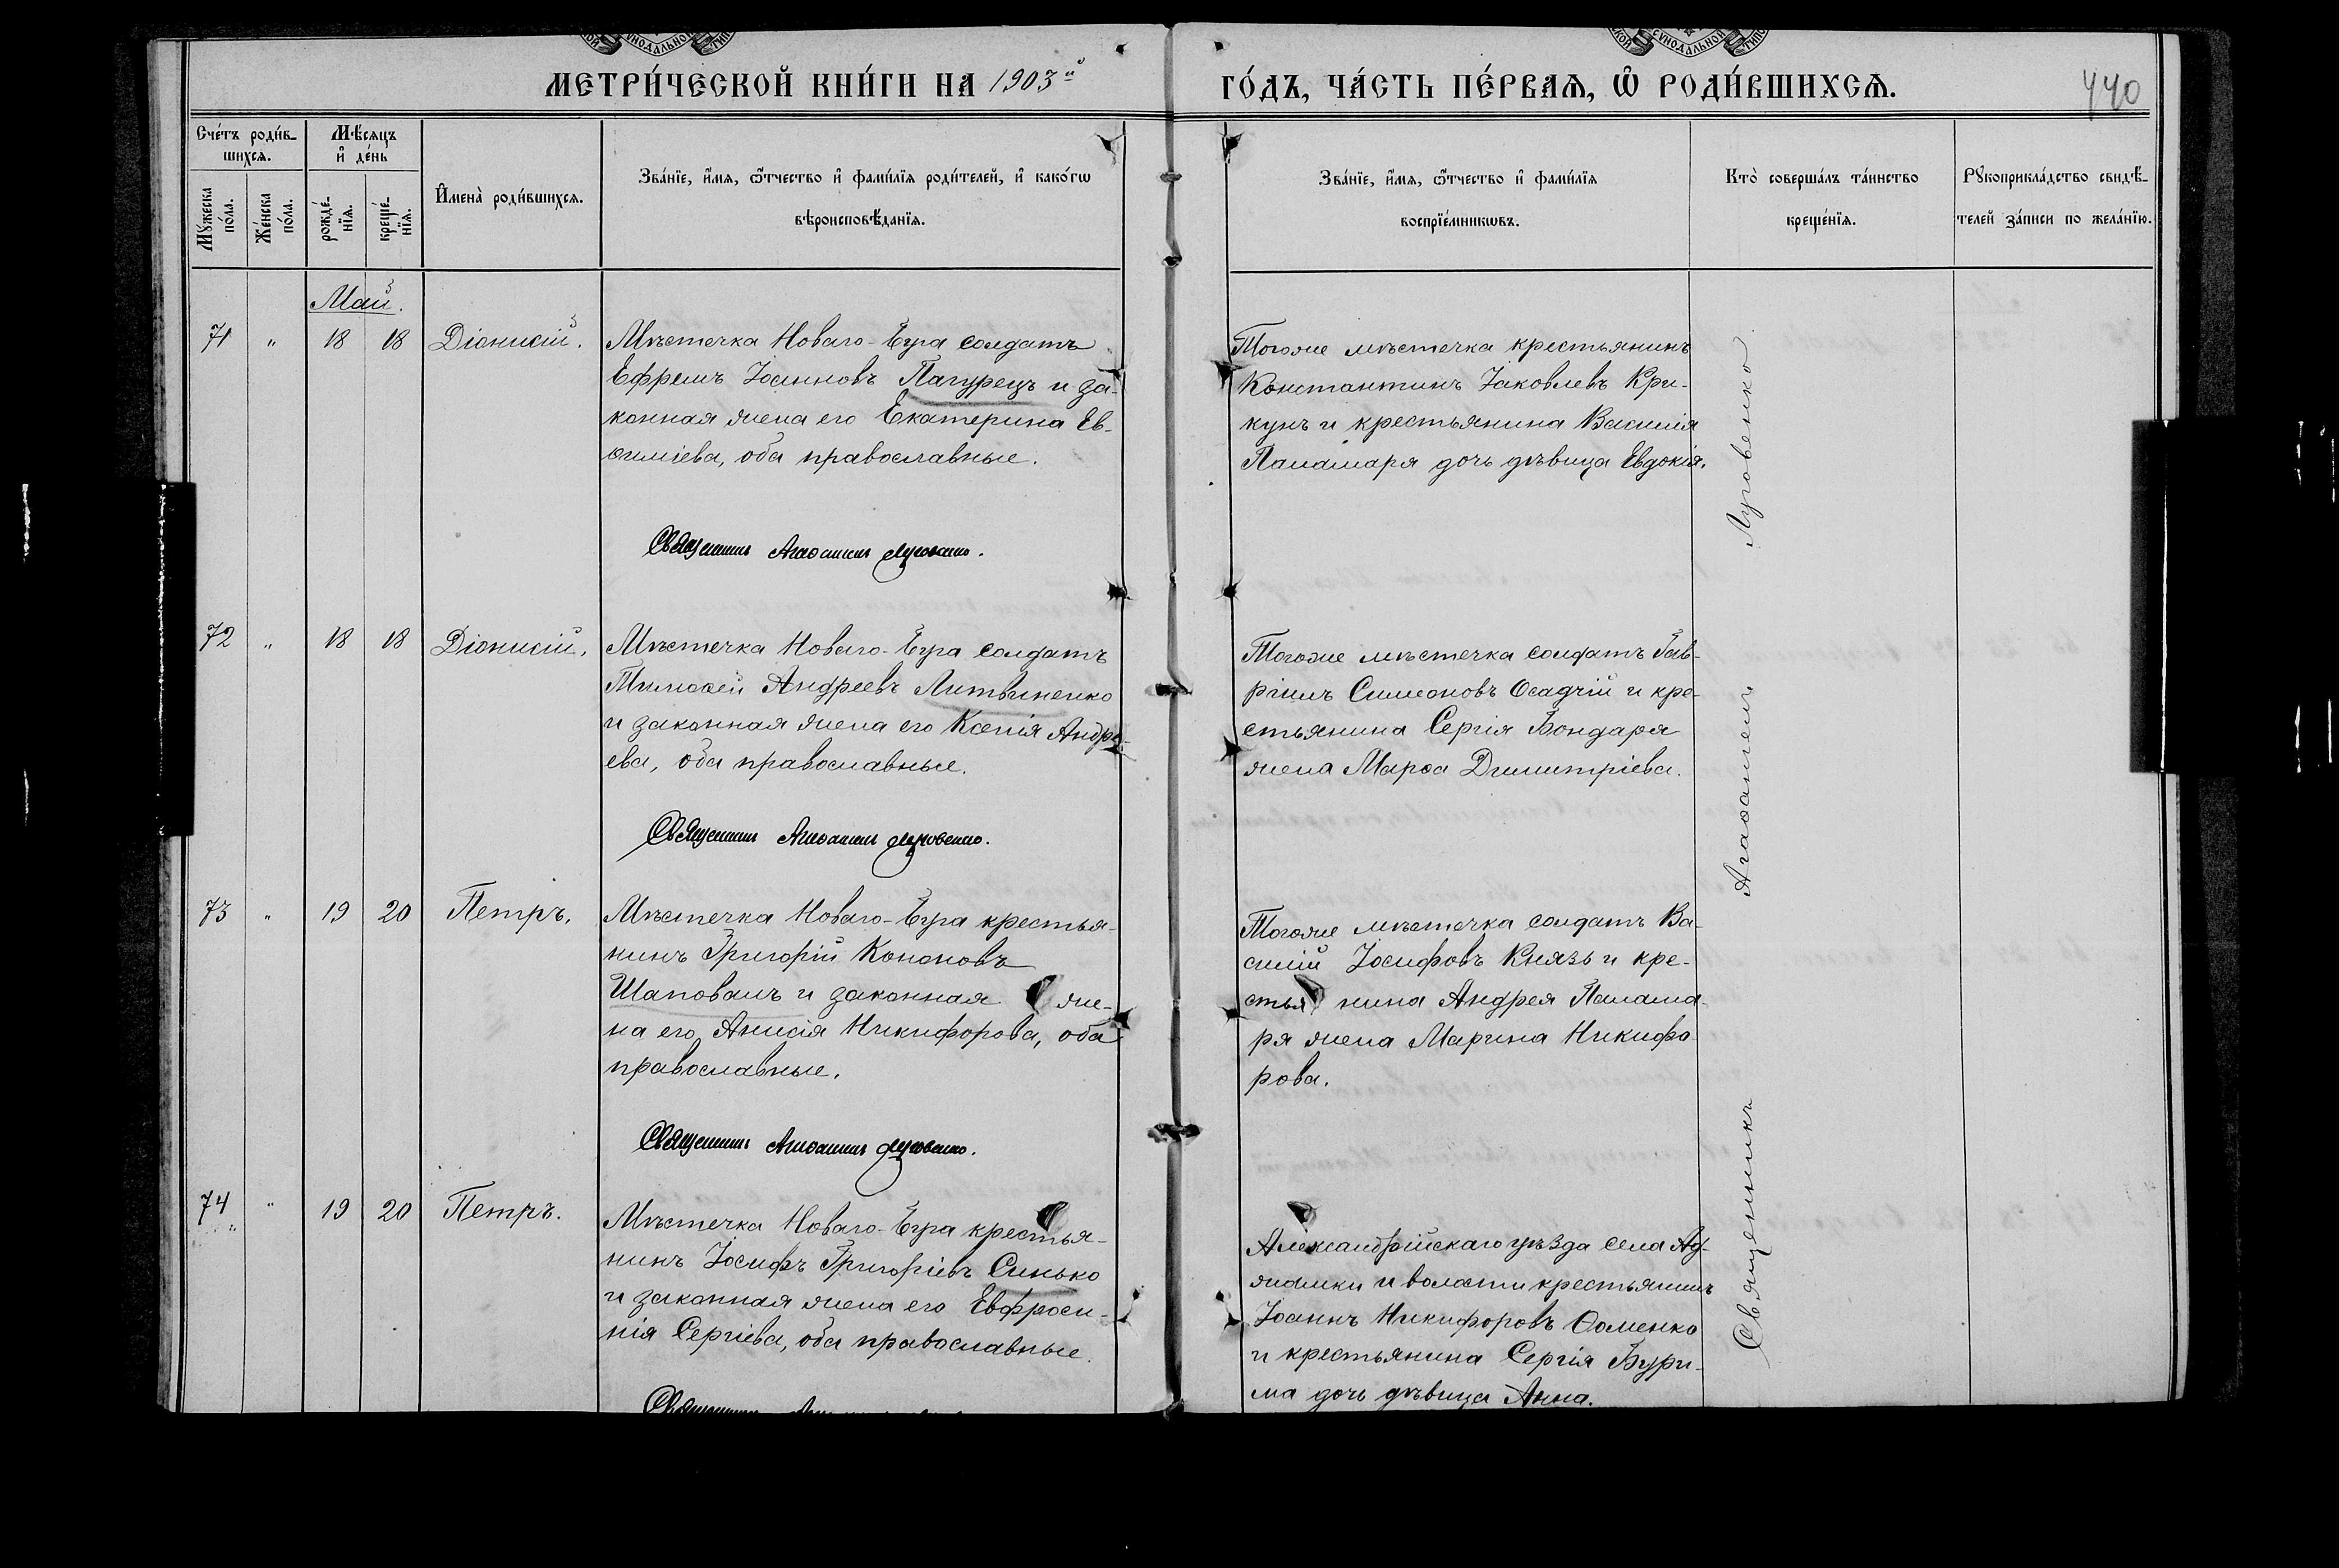 СѴНОДАЛЬНОЙ
СѴНОДАЛЬНОЙ
МЕТРИ́ЧЕСКОЙ КНИ́ГИ НА 1903й
ГО́ДЪ, ЧА́СТЬ ПЕ́РВАѦ, Ѡ҆ РОДИ́ВШИХСѦ.
440
Сче́тъ роди́в-
шихсѧ.
Мѣ́сѧцъ
и҆ де́нь
Мꙋ́жеска
по́ла.
Же́нска
по́ла.
рожде́-
нїѧ.
креще́-
нїѧ.
И҆мена̀ роди́вшихсѧ.
Зва́нїе, и҆́мѧ, ѻ҆́тчество и҆ фами́лїѧ роди́телей, и҆ како́гѡ
вѣроисповѣ́данїѧ.
Зва́нїе, и҆́мѧ, ѻ҆́тчество и҆ фами́лїѧ
воспрїе́мникѡвъ.
Кто̀ соверша́лъ та́инство
креще́нїѧ.
Рꙋкоприкла́дство свидѣ́-
телей за́писи по жела́нїю.
Май.
71 " 18 18 Діонисій.
Мѣстечка Новаго-Буга солдатъ
Ефремъ Іоанновъ Пагурецъ и за-
конная жена его Екатерина Ев-
ѳиміева, оба православные.
Священникъ Агаѳангелъ Луговенко.
Тогоже мѣстечка крестьянинъ
Константинъ Іаковлевъ Кри-
кунъ и крестьянина Василія
Паламаря дочь дѣвица Евдокія.
72 " 18 18 Діонисій.
Мѣстечка Новаго-Буга солдатъ
Тимоѳей Андреевъ Литвиненко
и законная жена его Ксенія Андре-
ева, оба православные.
Священникъ Агаѳангелъ Луговенко.
Тогоже мѣстечка солдатъ Гав-
ріилъ Симеоновъ Осадчій и кре-
стьянина Сергія Бондаря
жена Марѳа Димитріева.
73 " 19 20 Петръ.
Мѣстечка Новаго-Буга крестья-
нинъ Григорій Кононовъ
Шаповалъ и законная же-
на его Анисія Никифорова, оба
православные.
Священникъ Агаѳангелъ Луговенко.
Тогоже мѣстечка солдатъ Ва-
силій Іосифовъ Князь и кре-
стья нина Андрея Палама-
ря жена Марина Никифо-
рова.
74 " 19 20 Петръ.
Мѣстечка Новаго-Буга крестья-
нинъ Іосифъ Григоріевъ Синько
и законная жена его Евфроси-
нія Сергіева, оба православные.
Александрійскаго уѣзда села Ад-
жамки и волости крестьянинъ
Іоаннъ Никифоровъ Ѳоменко
и крестьянина Сергія Бури-
ма дочь дѣвица Анна.
Священникъ Агаѳангелъ Луговенко